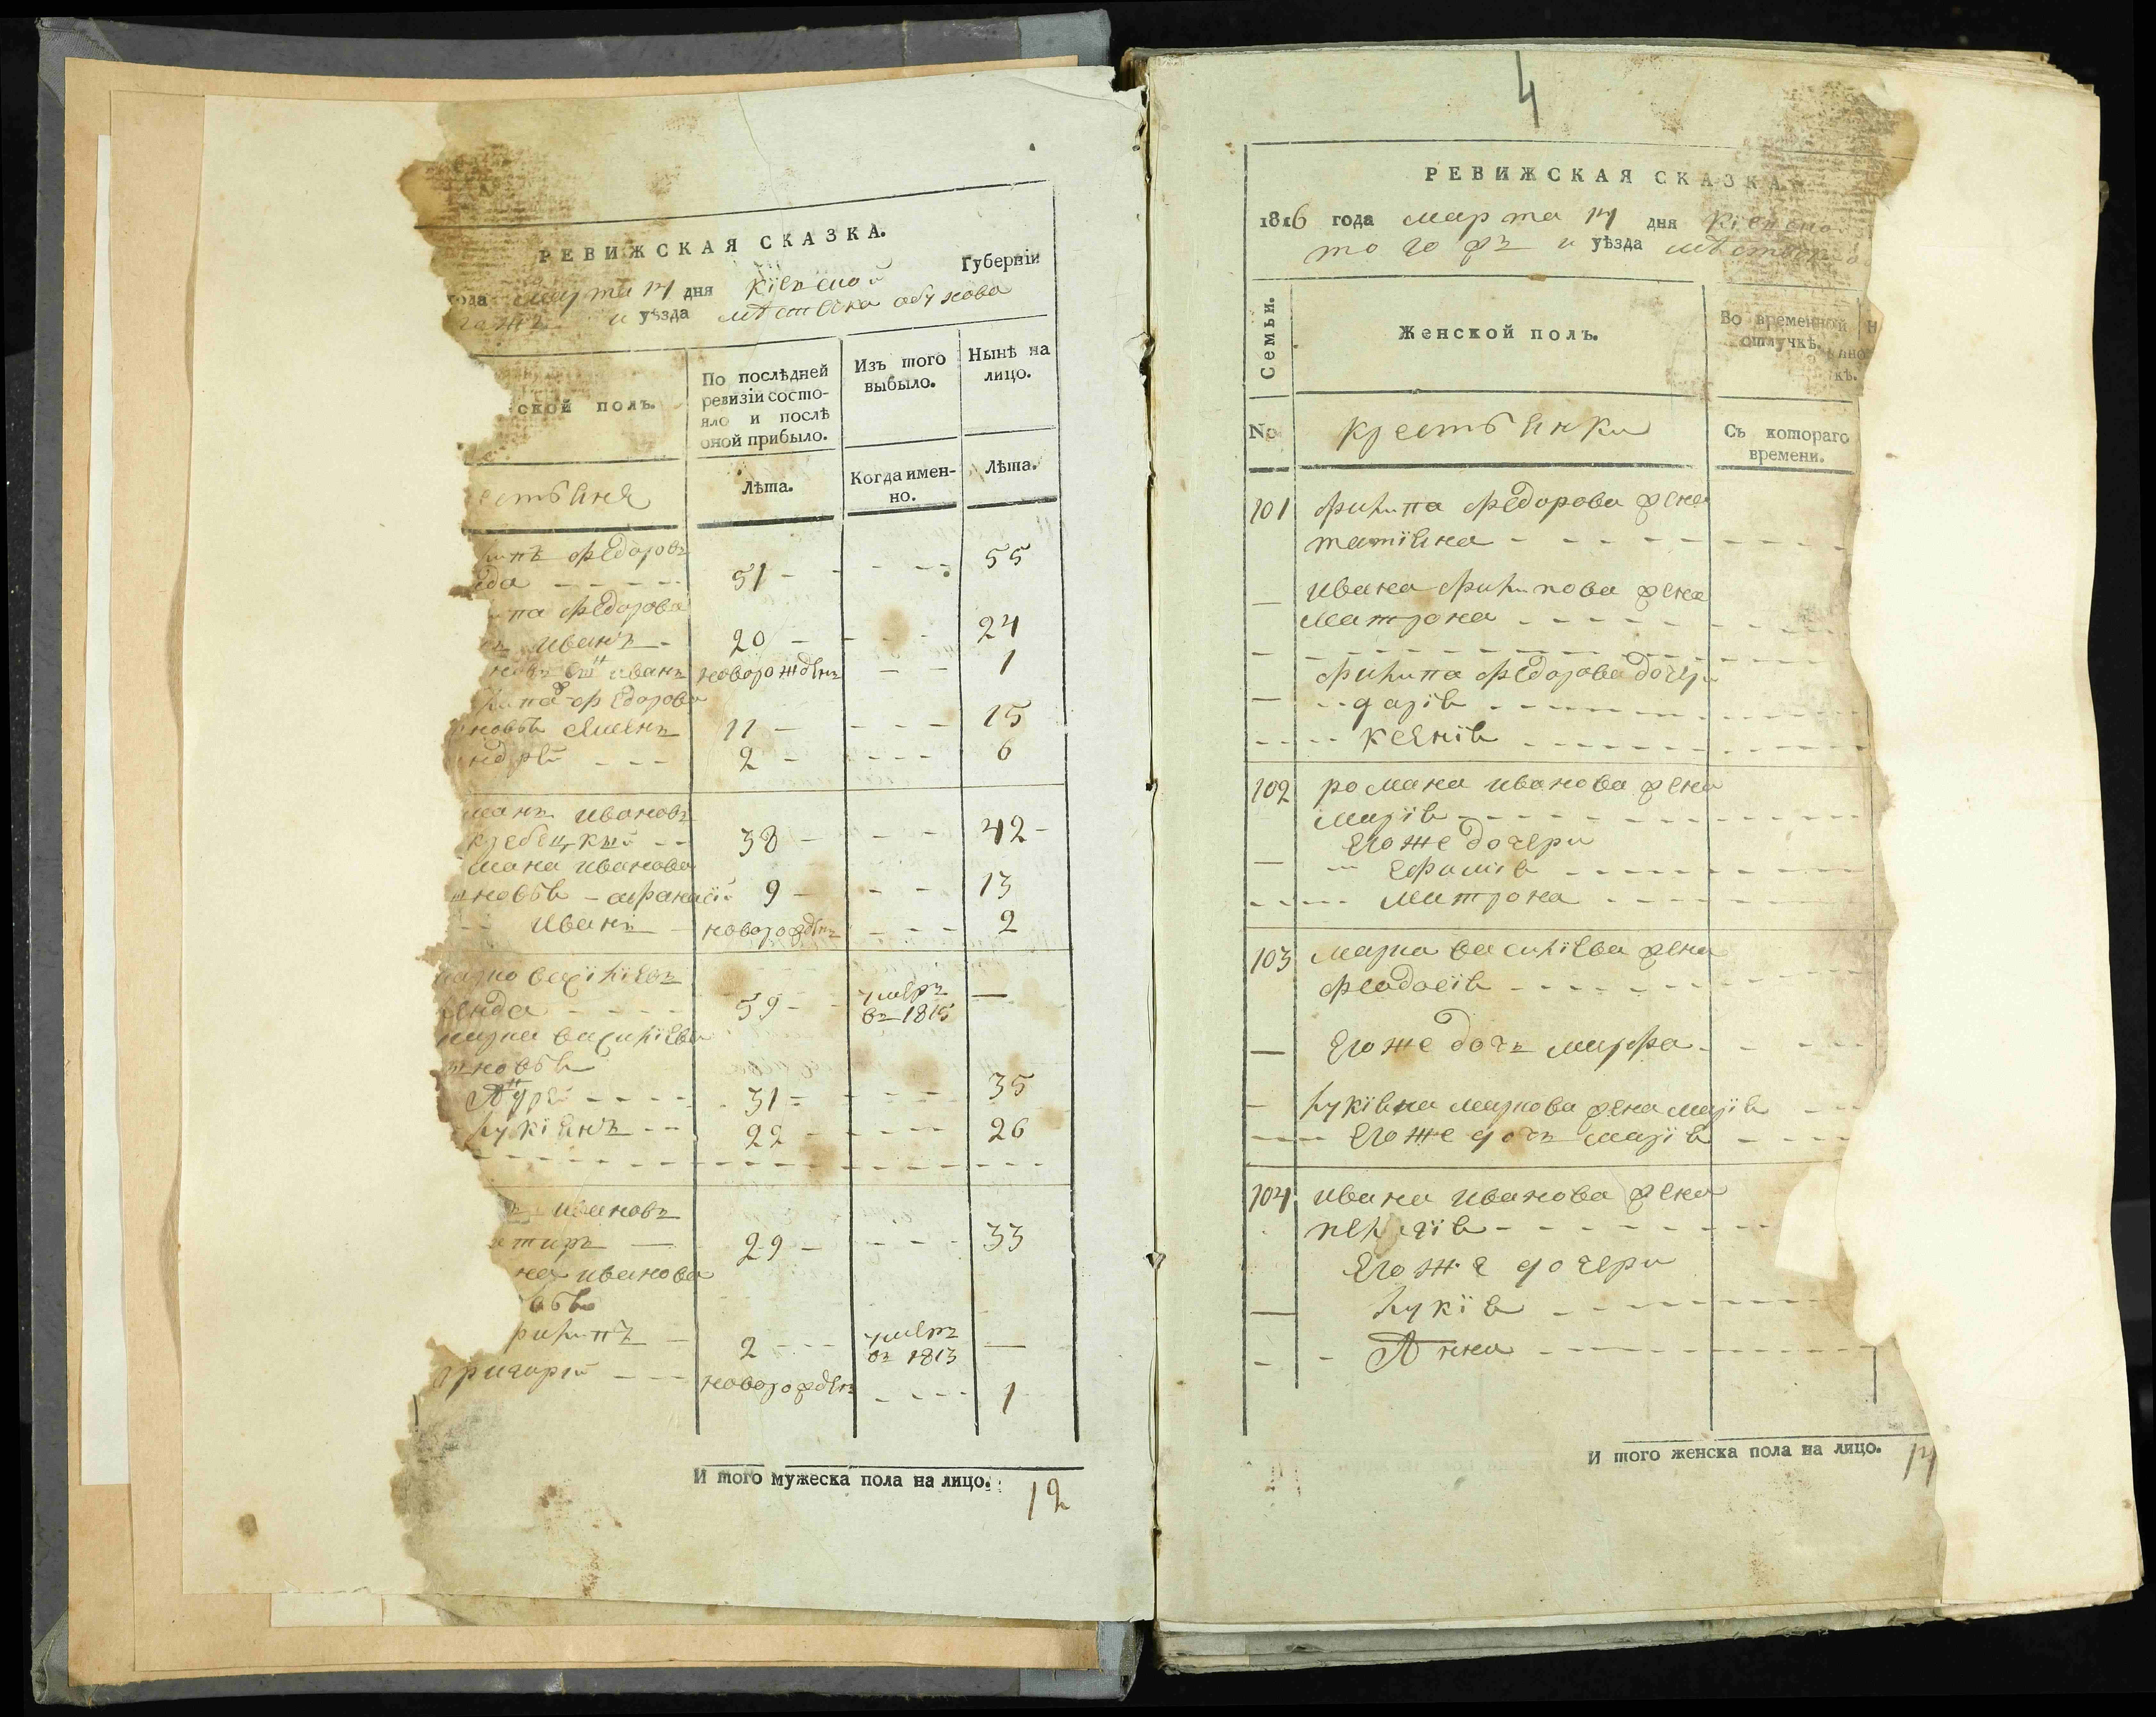 РЕВИЖСКАЯ СКАЗКА.
года марта 14 дня Кіевской Губерніи
и уѣзда мѣстечка обухова
ской полъ.
По послѣдней ревизіи состо-
яло и послѣ
оной прибыло.
Изъ того
выбыло.
Нынѣ на
лицо.
Лѣта.
Когда имен-
но.
Лѣта.
естьяня
липъ федоровъ
еда 51 55
па федорова
Иванъ 20 24
иванъ новорожденъ 1
липа федорова
новья Якимъ 11 15
ндрей 2 6
манъ ивановъ
кребецкий 38 42
мана иванова
новья афанасій 9 13
Иванъ новорожденъ 2
марко василіевъ
енда 59 умеръ
въ 1815
марка василіева
новья
Андрей 31 35
лукіянъ 22 26
ивановъ
29 33
на иванова
овья
филипъ 2 умеръ
въ 1813
григорій новорожденъ 1
И того мужеска пола на лицо. 12
4
РЕВИЖСКАЯ СКАЗКА.
1816 года марта 14 дня Кіевско
того жъ и уѣзда мѣстечк
Семьи.
Женской полъ.
Во временной
отлучкѣ.
Н
кѣ.
No
крестьянки
Съ котораго
времени.
101 филипа федорова жена
татіяна
ивана филипова жена
матрона
филипа федорова дочери
дарія
ксенія
102 романа иванова жена
марія
Его же дочери
Ефимія
матрона
103 марка василіева жена
феодосія
Его же дочъ марфа
лукіяна маркова жена марія
Его же дочъ марія
104 ивана иванова жена
пелагія
Его же дочери
лукія
Анна
И того женска пола на лицо. 14